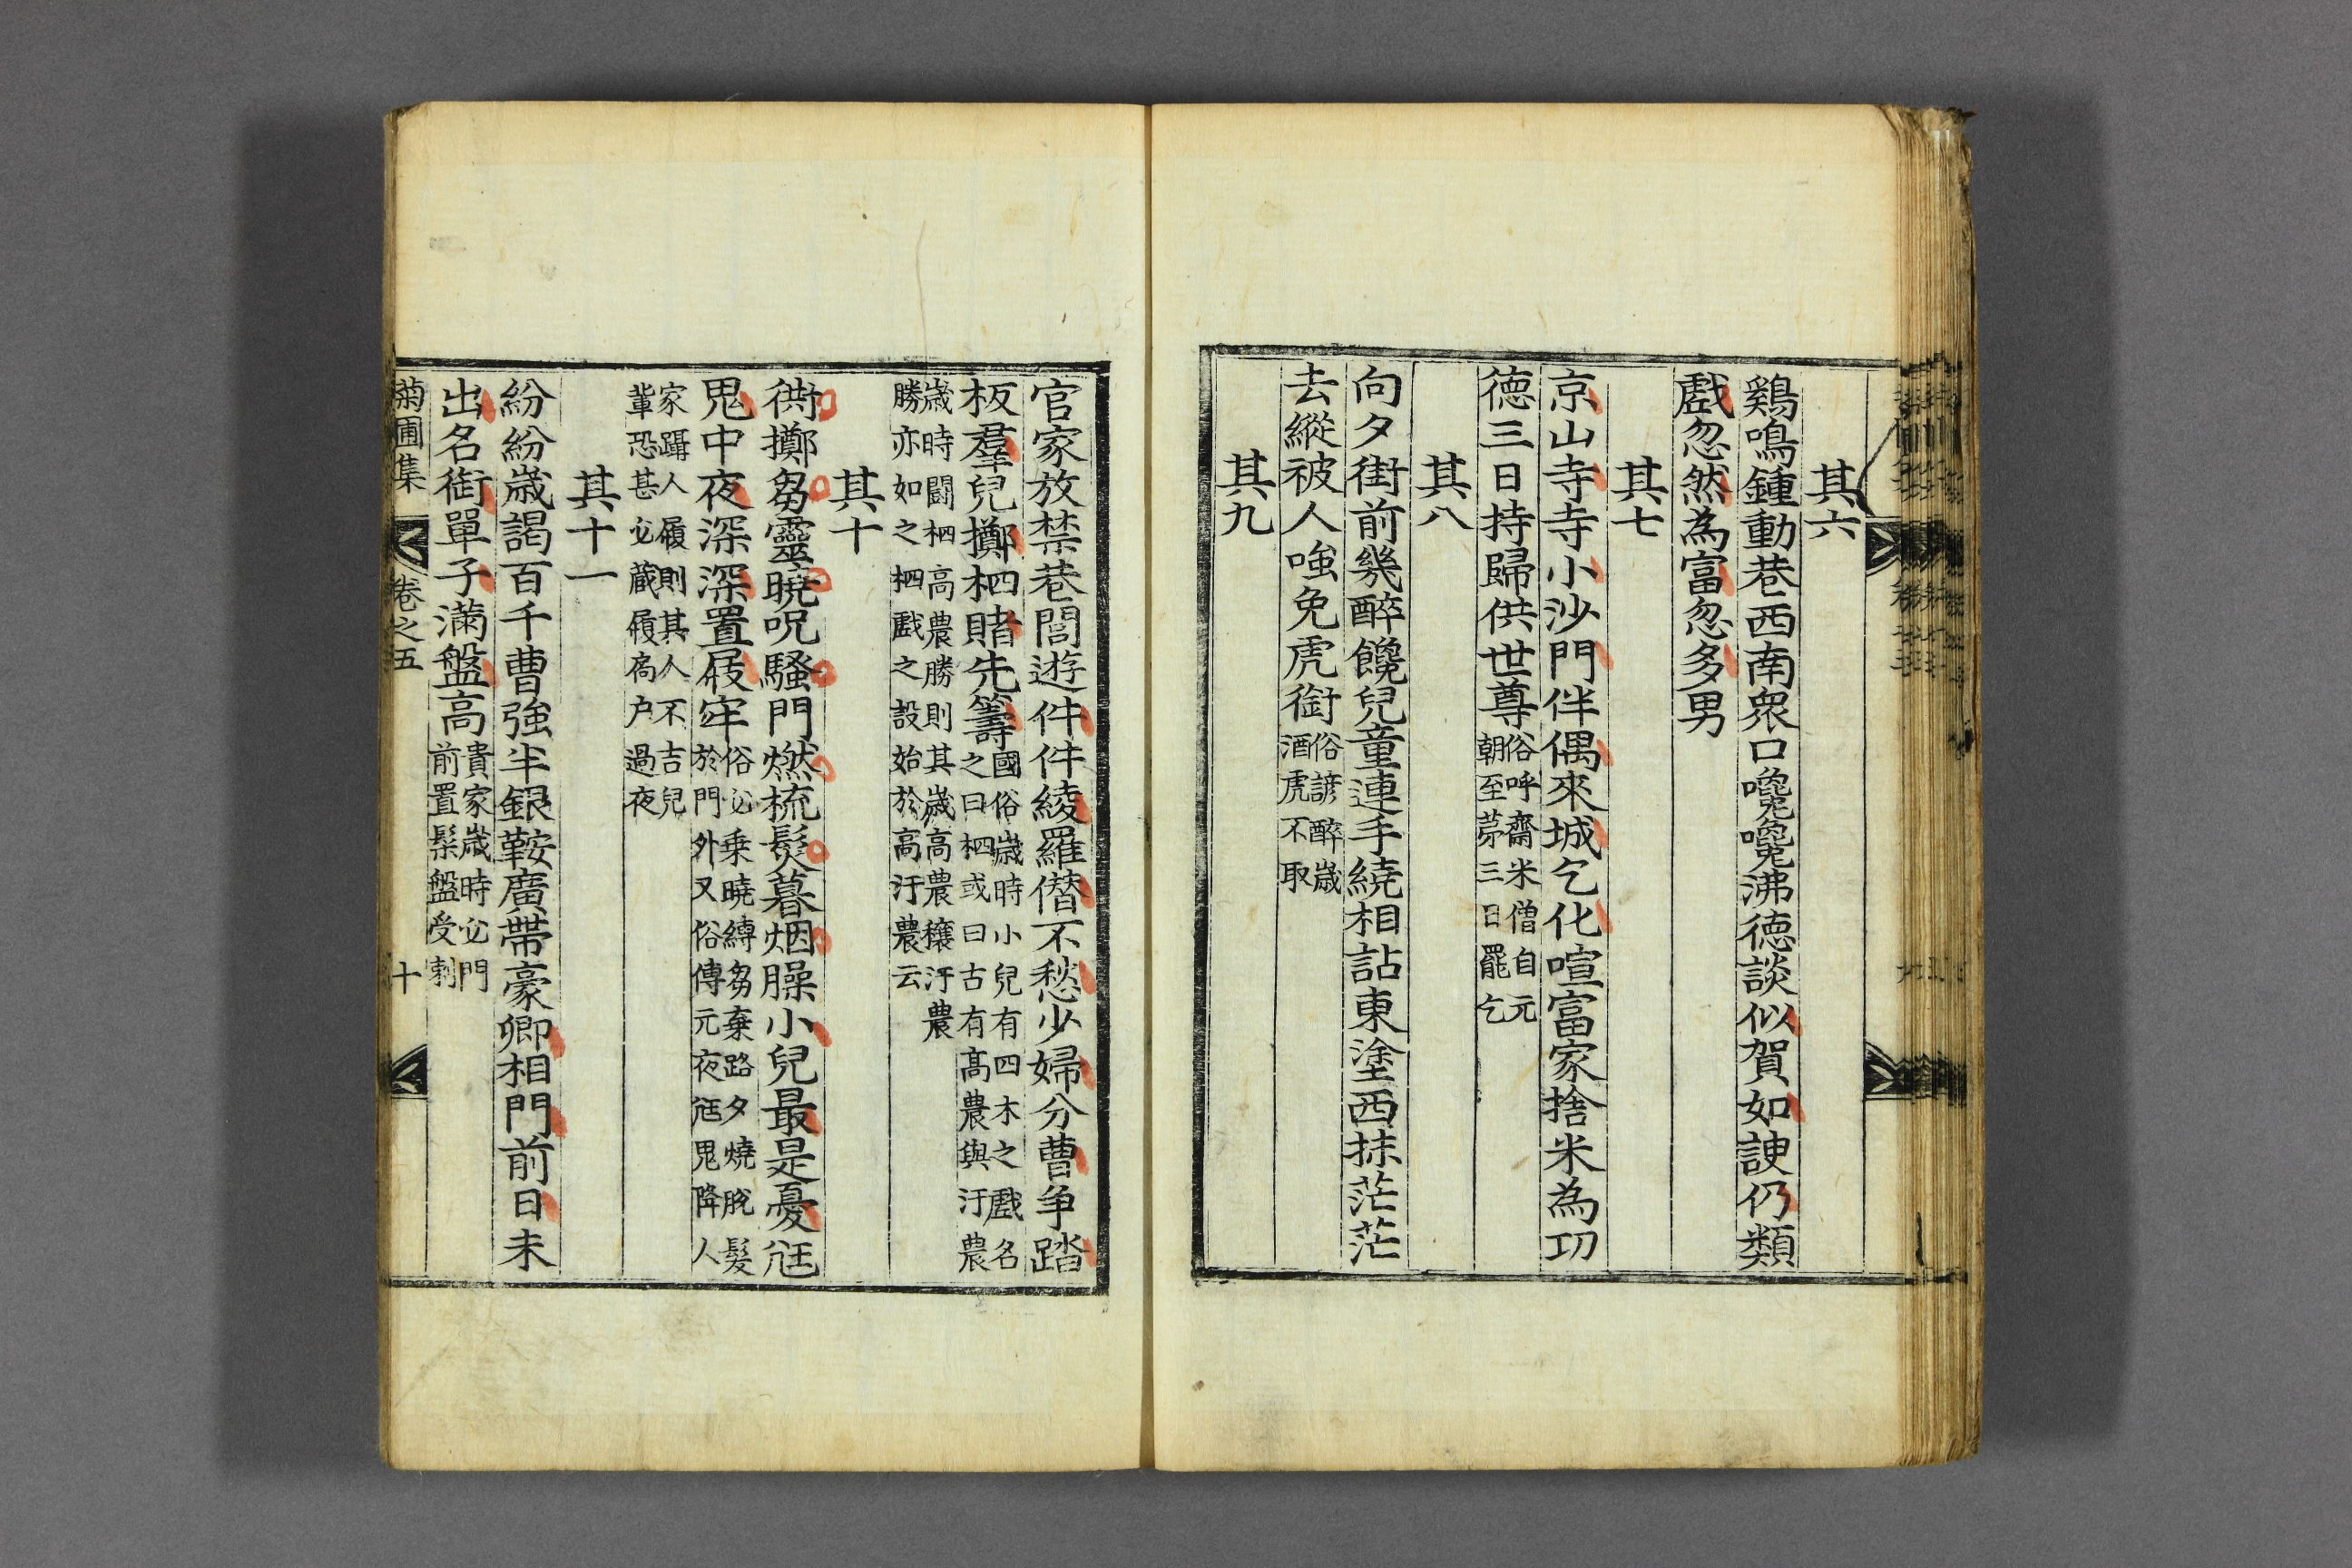 其六
鷄鳴鍾動巷西南衆口嚵嚵沸德談似賀如諛仍類
戲忽然為富忽多男
其七
京山寺寺小沙門伴偶來城乞化喧富家捨米為功
德三日持歸供世尊俗呼齋米僧自元
朝至第三日罷乞
其八
向夕街前幾醉饞兒童連手繞相詀東塗西抹茫茫
去縱被人嗤免虎銜俗諺醉歲
酒虎不取
其九
官家放禁巷閭遊件件綾羅僭不愁少婦分曹爭踏
板羣兒擲柶賭先籌國俗歲時小兒有四木之戲名
之曰柶或曰古有高農與汙農
歲時鬪柶高農勝則其歲高農穰汙農
勝亦如之柶戲之設始於高汙農云
其十
衖擲芻靈曉呪騷門燃梳髮暮烟臊小兒最是憂尪
鬼中夜深深置屐牢俗必乗曉縛芻棄路夕燒脫髮
於門外又俗傳元夜尪鬼降人
家躡人履則其人不吉兒
輩恐甚必藏履扄户過夜
其十一
紛紛歲謁百千曹強半銀鞍廣帶豪卿相門前日未
出名銜單子滿盤高貴家歲時必門
前置髹盤受刺
菊圃集 卷之五 十